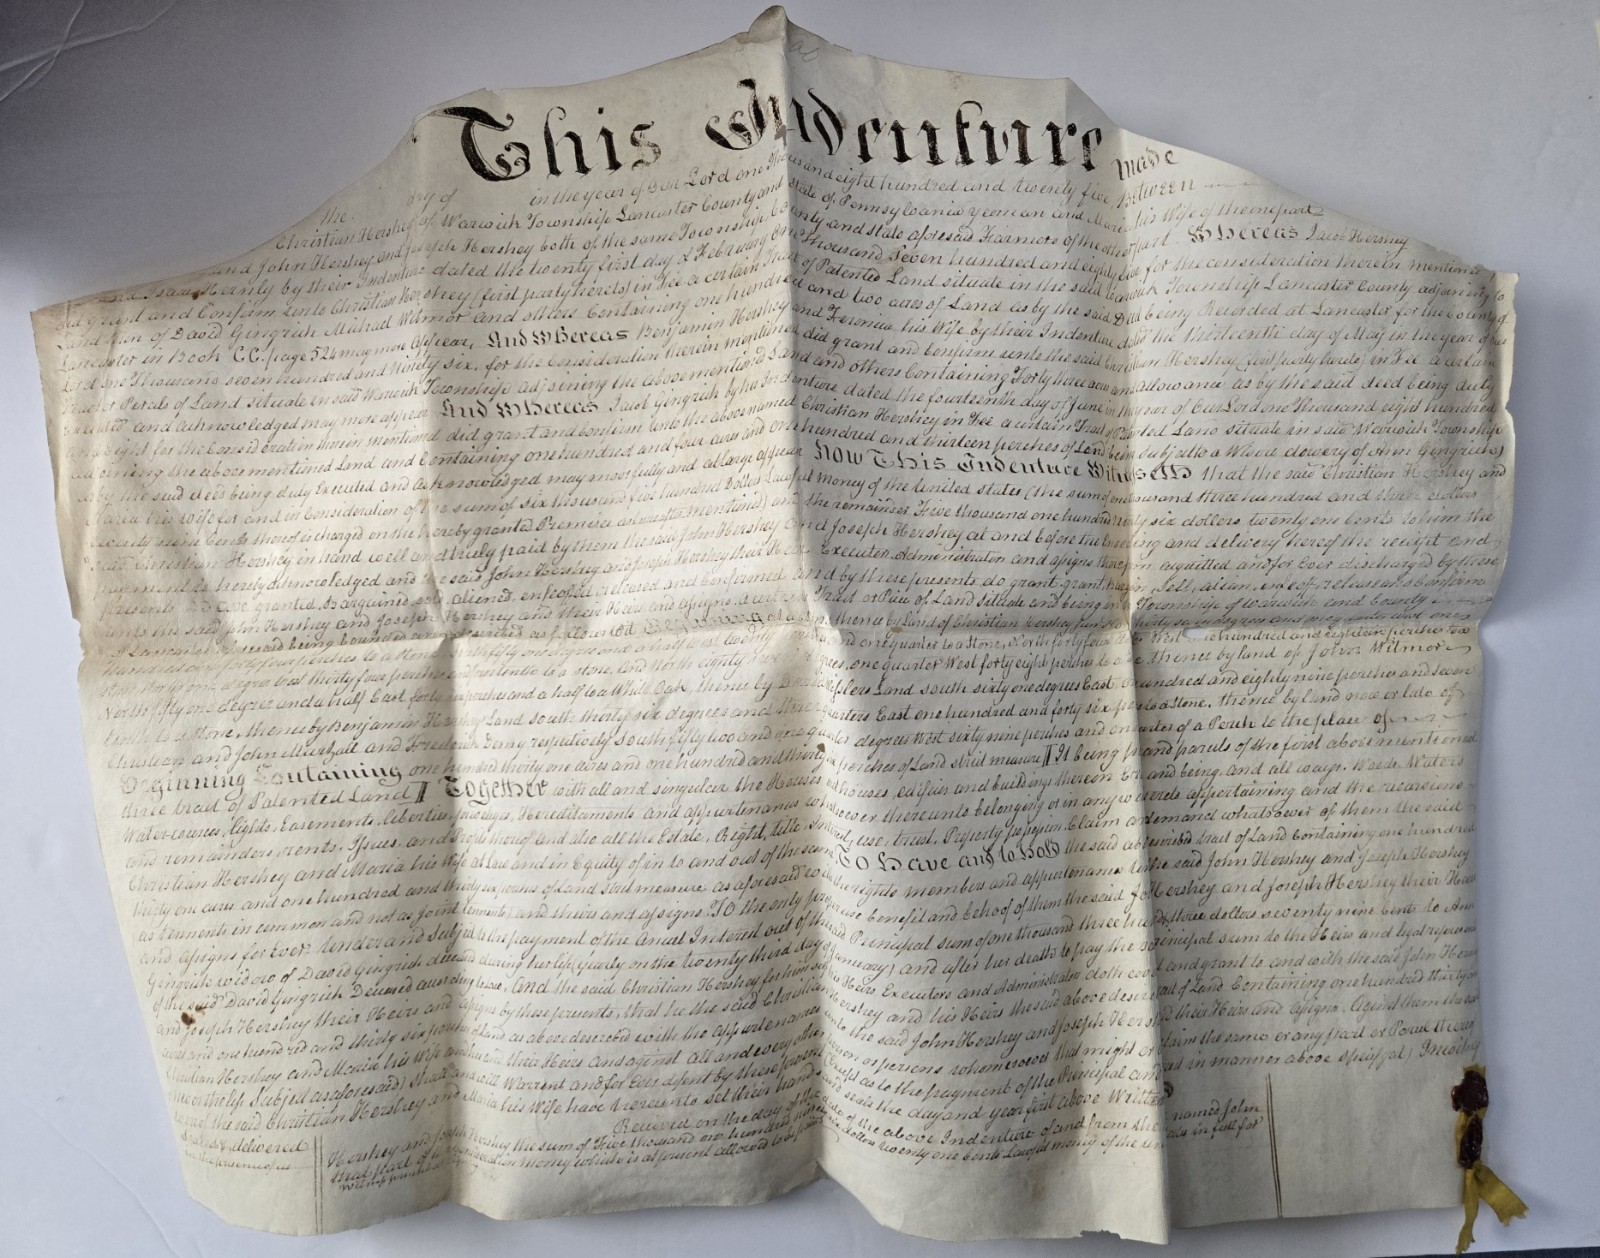 This Indenture made
the day of in the year of Our Lord one Thousand eight hundred and twenty five Between
Christian Hershey of Warwick Township Lancaster County and State of Pennsylvania yeoman and Maria his Wife of the one part
and John Hershey and Joseph Hershey both of the same Township County and State aforesaid Farmers of the other part. Whereas Jacob Hershey
and Isaac Hernly by their Indenture dated the twenty first day of February One Thousand Seven hundred and eighty five for the consideration therein mentioned
did grant and Confirm unto Christian Hershey (first party hereto) in Fee a certain Tract of Patented Land situate in the said Warwick Township Lancaster County adjoining to
Land of David Gingrich Michael Witmor and others Containing one hundred and two acres of Land as by the said Deed being Recorded at Lancaster for the County of
Lancaster in Book C.C. page 524 may more Appear, And Whereas Benjamin Hershey and Feronica his Wife by their Indenture dated the thirteenth day of May in the year of our
Lord one Thousand seven hundred and Ninety six, for the Consideration therein mentioned did grant and Confirm unto the said Christian Hershey (first party hereto) in Fee a certain
Tract or Parcels of Land situate in said Warwick Township adjoining the above mentioned Land and others Containing Forty three acres and Allowance as by the said deed being duly
executed and acknowledged may more appear And Whereas Jacob Gingrich by his Indenture dated the fourteenth day of June in the year of Our Lord one Thousand eight hundred
and eight for the Consideration therein mentioned did grant and Confirm unto the above named Christian Hershey in Fee a certain Tract of Patented Land situate in said Warwick Township
adjoining the above mentioned Land and Containing one hundred and four acres and one hundred and thirteen perches of Land being Subject to a Widow dowery of Ann Gingrich
as by the said deed being duly Executed and acknowledged may most fully and at large appear Now This Indenture Witnesseth that the said Christian Hershey and
Maria his wife for and in Consideration of the sum of six thousand five hundred Dollars Lawful money of the United States (the sum of one thousand three hundred and three dollars
seventy nine Cents thereof is charged on the hereby granted Premises as hereafter Mentioned) and the remainder Five thousand one hundred ninety six dollars twenty one Cents to him the
said Christian Hershey in hand well and truly paid by them the said John Hershey and Joseph Hershey at and before the ensealing and delivery hereof the receipt and
payment is hereby acknowledged and the said John Hershey and Joseph Hershey their Heirs Executors Administrators and assigns therefrom acquitted and for Ever discharged by these
presents Have granted, bargained, sold, aliened, enfeoffed released and Confirmed and by these presents do grant, bargain, sell, alien, enfeoff, release and Confirm
unto the said John Hershey and Joseph Hershey and their Heirs and assigns a certain Tract or Piece of Land situate and being in the Township of Warwick and County
of Lancaster aforesaid being bounded and described as followeth Beginning at a thence by Land of Christian Hershey
hundred and forty four perches to a Stone and one quarter to a Stone, North forty four West one hundred and eighteen perches to a
North fifty one degree and a half East forty perches and a half to a White Oak, thence by Land South sixty one degrees East, one hundred and eighty nine perches and seven
tenths to a Stone, thence by Benjamin Hershey Land South thirty six degrees and three quarters East one hundred and forty six perches to a Stone, thence by Land now or late of
Christian and John Murhall and Frederick respectively South fifty two and one quarter degrees West sixty nine perches and one quarter of a Perch to the place of
Beginning Containing one hundred thirty one acres and one hundred and thirty six perches of Land strict measure It being part and parcels of the first above mentioned
three tract of Patented Land Together with all and singular the Houses outhouses, edifices and buildings thereon Erected and being, and all ways, Woods, Waters
Water courses, Rights, Easements, liberties, privileges, Hereditaments and appurtenances whatsoever thereunto belonging or in anywise appertaining and the reversions
and remainders, rents, Issues, and Profits thereof and also all the Estate, Right, title, Interest, use, trust, Property possession, Claim and demand whatsoever of them the said
Christian Hershey and Maria his Wife at law and in Equity of in to and out of the same, To Have and to Hold the said above described tract of Land Containing one hundred
thirty one acres and one hundred and thirty six perches of Land Strict measure as aforesaid with the rights members and appurtenances unto the said John Hershey and Joseph Hershey
as tennents in common and not as joint tennents) and theirs and assigns. To the only proper use benefit and behoof of them the said John Hershey and Joseph Hershey their Heirs
and assigns for Ever under and Subject to the payment of the anual Interest out of the said Principal sum of one thousand three hundred three dollars seventy nine Cents to Ann
Gingrich widow of David Gingrich deceased during her life (yearly on the twenty third day of January) and after her death to pay the Principal sum to the Heirs and legal representatives
of the said David Gingrich Deceased And the said Christian Hershey for himself his Heirs Executors and Administrators doth covenant and grant to and with the said John Hershey
and Joseph Hershey their Heirs and assigns by these presents, that he the said Christian Hershey and his Heirs the said above described tract of Land Containing one hundred thirty one
acres and one hundred and thirty six perches of land as above described with the appurtenances unto the said John Hershey and Joseph Hershey their Heirs and assigns. Against them the said
Christian Hershey and Maria his Wife and their Heirs and against all and every other person or persons whomsoever that might or claim the same or any part or Parcel thereof
Subject as aforesaid) shall and will Warrent and for Ever defent by these presents Except as to the payment of the Principal and in manner above specified) In witness
whereof the said Christian Hershey and Maria his Wife have hereunto set their hands and seals the day and year first above Written
Sealed & delivered
in the presence of us
Received on the day of the date of the above Indenture of and from the named John
Hershey and Joseph Hershey the sum of Five thousand one hundred ninety six dollars twenty one Cents Lawful money of the in full for
that part of the Consideration money which is at present allowed to be paid
Witness present